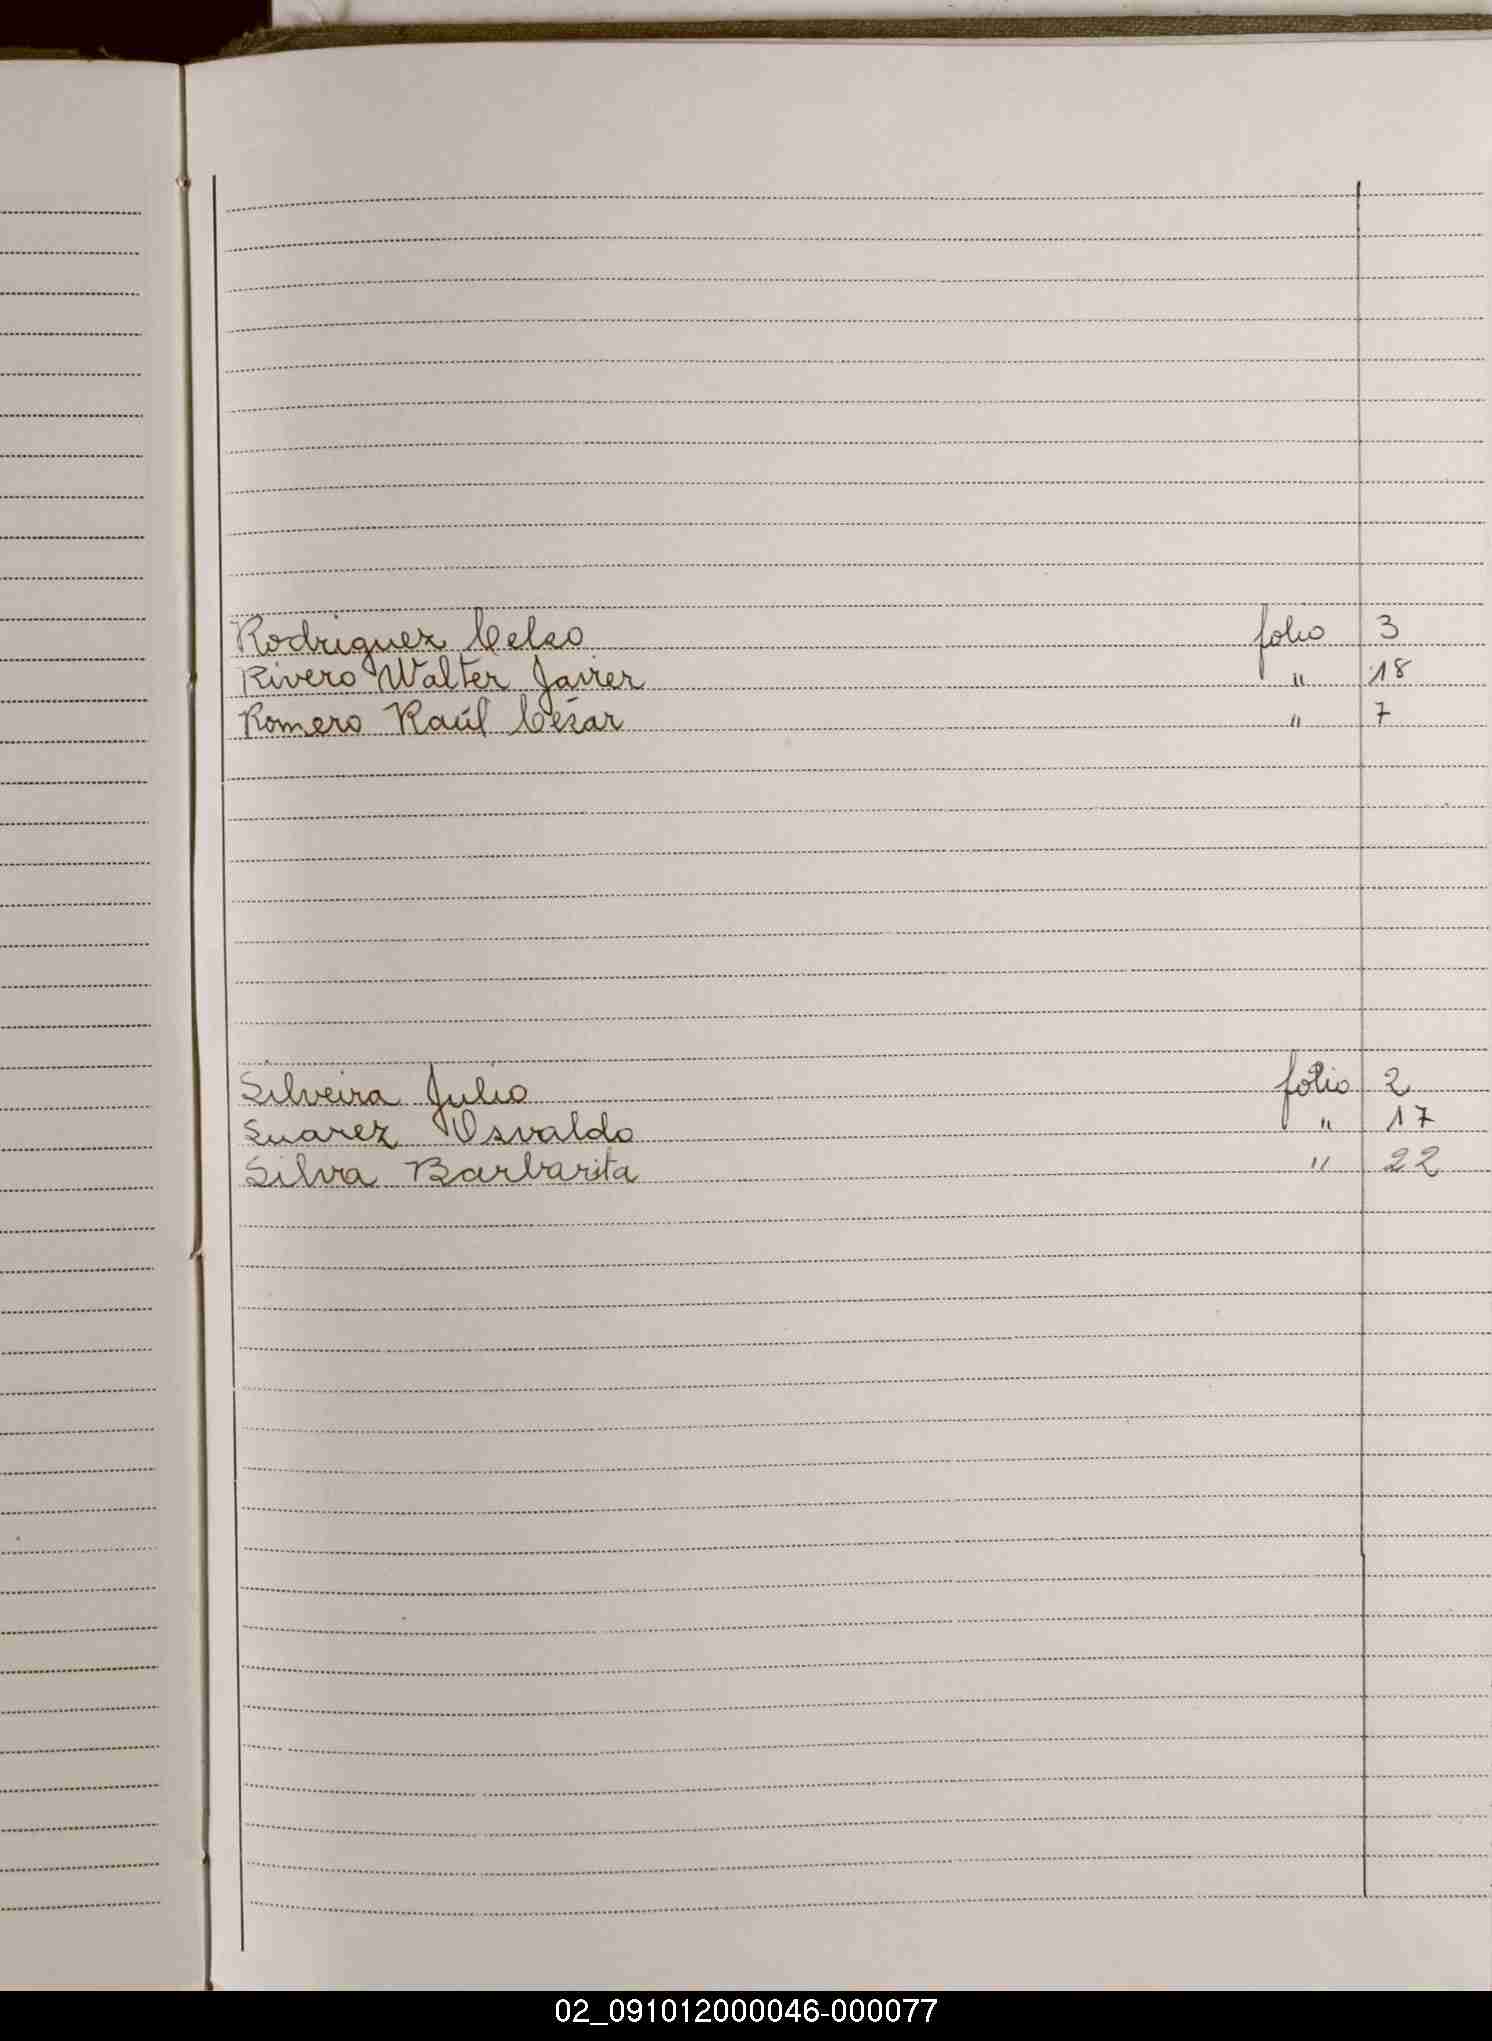 Rodriguez Celso folio 3
Rivero Walter Javier " 18
Romero Raúl César " 7
Silveira Julio folio 2
Suarez Osvaldo " 17
Silva Barbarita " 22
02_091012000046-000077